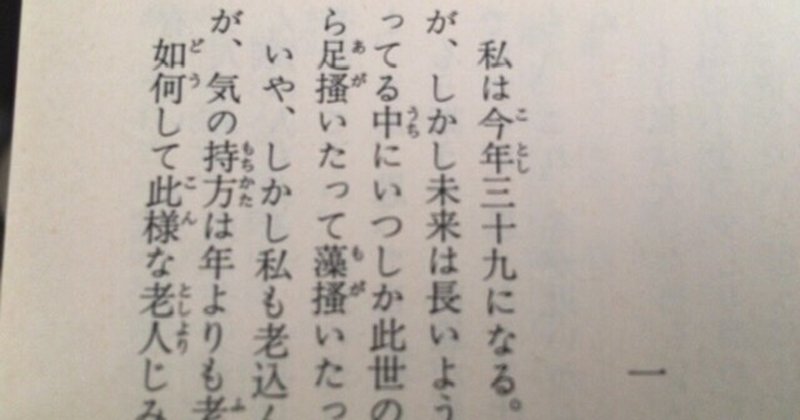 一
私は今年三十九になる。
が、しかし未来は長いよう
ってる中にいつしか此世の
ら足掻いたって藻掻いたっ
いや、しかし私も老込ん
が、気の持方は年よりも老
如何して此様な老人じみ